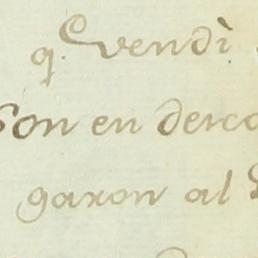 q. vendi
son en desco
garon al